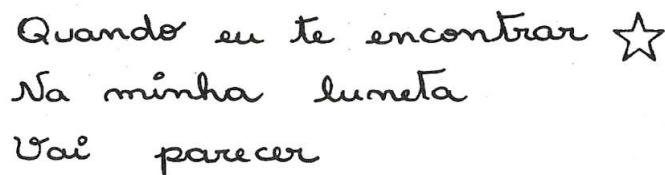 Quando eu te encontrar
Na minha luneta
Vai parecer